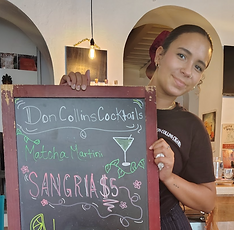 Don Collins Cocktails
Matcha Martini
SANGRIA $5